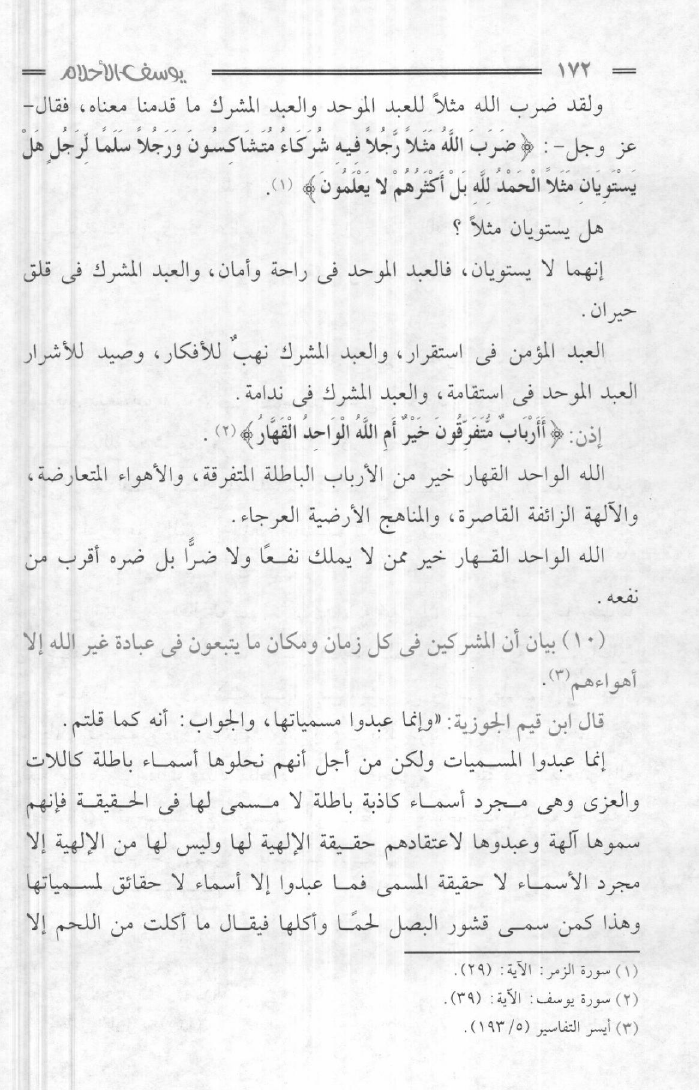 ١٧٢ يوسف الأحلام
ولقد ضرب الله مثلاً للعبد الموحد والعبد المشرك ما قدمنا معناه، فقال-
عز وجل-: ﴿ضَرَبَ اللَّهُ مَثَلاً رَّجُلاً فِيهِ شُرَكَاءُ مُتَشَاكِسُونَ وَرَجُلاً سَلَمًا لِّرَجُلٍ هَلْ
يَسْتَوِيَانِ مَثَلاً الْحَمْدُ لِلَّهِ بَلْ أَكْثَرُهُمْ لا يَعْلَمُونَ﴾ (١).
هل يستويان مثلاً ؟
إنهما لا يستويان، فالعبد الموحد فى راحة وأمان، والعبد المشرك فى قلق
حيران.
العبد المؤمن فى استقرار، والعبد المشرك نهبٌ للأفكار، وصيد للأشرار
العبد الموحد فى استقامة، والعبد المشرك فى ندامة.
إذن: ﴿أَأَرْبَابٌ مُّتَفَرِّقُونَ خَيْرٌ أَمِ اللَّهُ الْوَاحِدُ الْقَهَّارُ﴾ (٢).
الله الواحد القهار خير من الأرباب الباطلة المتفرقة، والأهواء المتعارضة،
والآلهة الزائفة القاصرة، والمناهج الأرضية العرجاء.
الله الواحد القهار خير ممن لا يملك نفعًا ولا ضرًّا بل ضره أقرب من
نفعه.
(١٠) بيان أن المشركين فى كل زمان ومكان ما يتبعون فى عبادة غير الله إلا
أهواءهم(٣).
قال ابن قيم الجوزية: «وإنما عبدوا مسمياتها، والجواب: أنه كما قلتم.
إنما عبدوا المسميات ولكن من أجل أنهم نحلوها أسماء باطلة كاللات
والعزى وهى مجرد أسماء كاذبة باطلة لا مسمى لها فى الحقيقة فإنهم
سموها آلهة وعبدوها لاعتقادهم حقيقة الإلهية لها وليس لها من الإلهية إلا
مجرد الأسماء لا حقيقة المسمى فما عبدوا إلا أسماء لا حقائق لمسمياتها
وهذا كمن سمى قشور البصل لحمًا وأكلها فيقال ما أكلت من اللحم إلا
(١) سورة الزمر: الآية: (٢٩).
(٢) سورة يوسف: الآية: (٣٩).
(٣) أيسر التفاسير (٥/ ١٩٣).